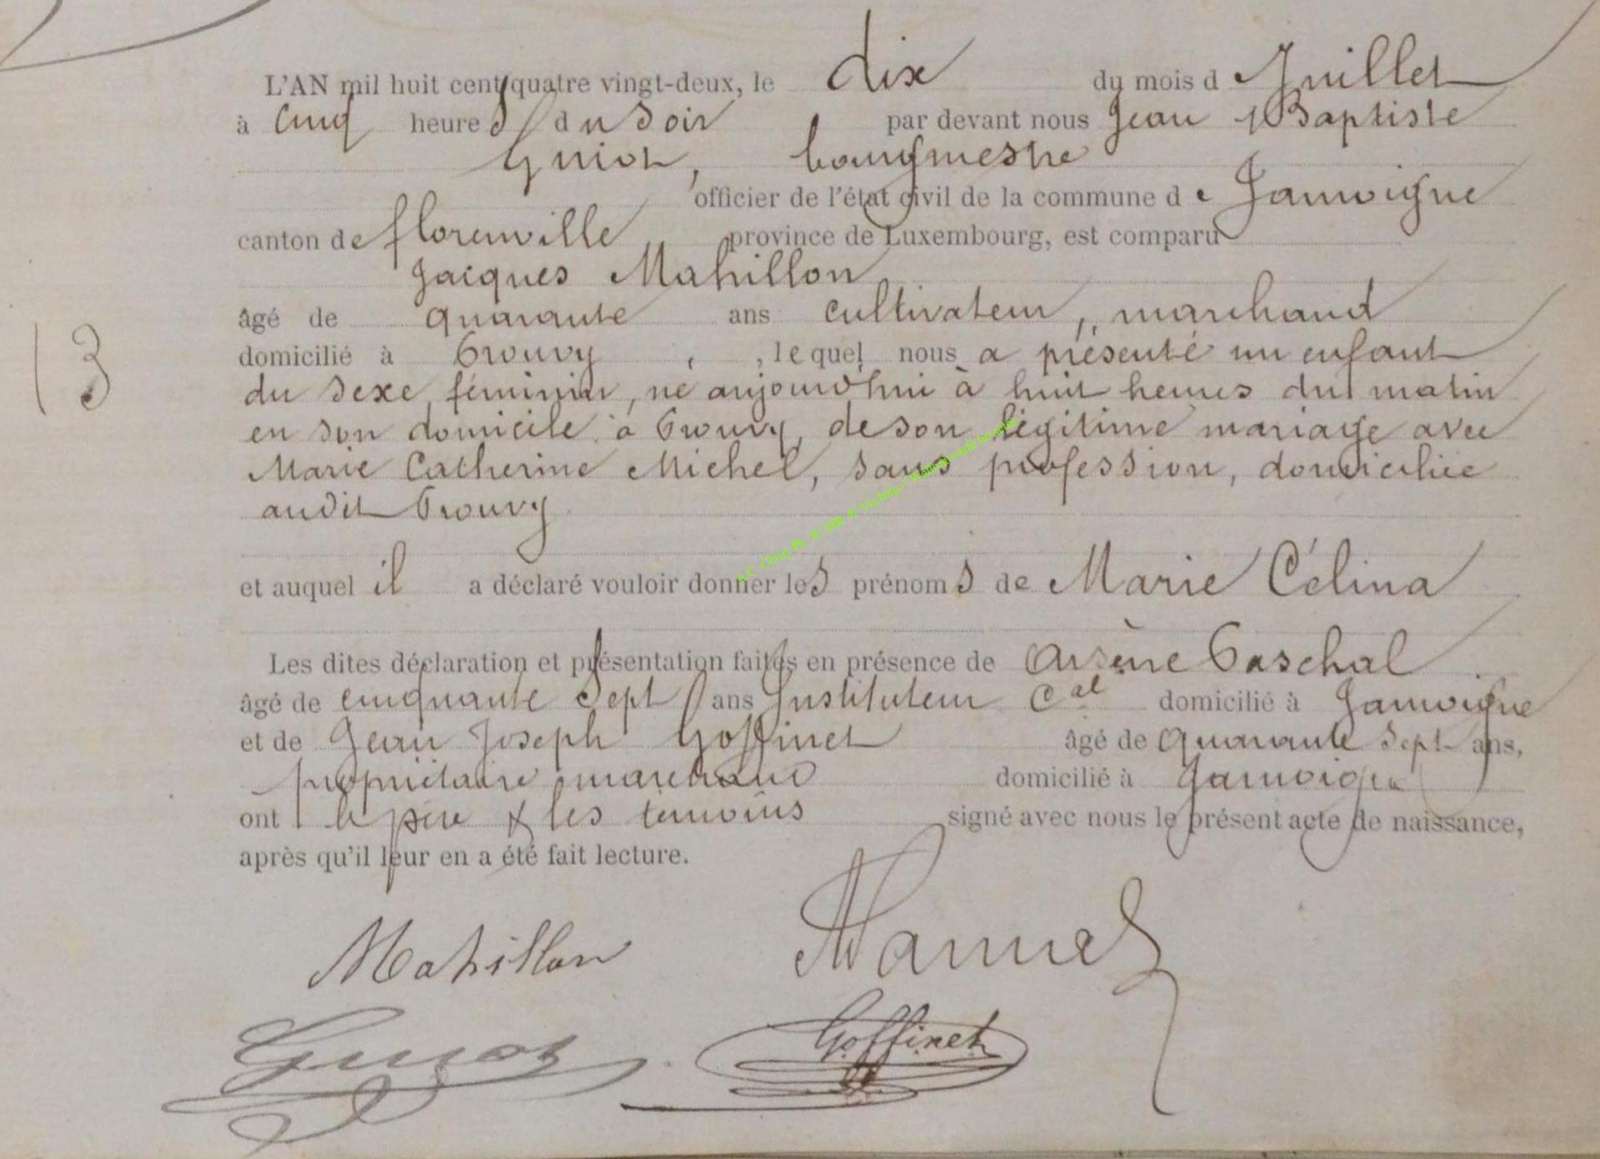 L'AN mil huit cent quatre vingt-deux, le dix du mois d Juillet
à cinq heures du soir par devant nous Jean Baptiste
Guiot, bourgmestre
officier de l'état civil de la commune de Jamoigne
canton de florenville province de Luxembourg, est comparu
Jacques Mahillon
âgé de quarante ans cultivateur, marchand
13
domicilié à Prouvy, lequel nous a présenté un enfant
du sexe féminin, né aujourd'hui à huit heures du matin
en son domicile à Prouvy, de son légitime mariage avec
Marie Catherine Michel, sans profession, domiciliée
audit Prouvy
et auquel il a déclaré vouloir donner les prénoms de Marie Célina
Les dites déclaration et présentation faites en présence de Arsène Paschal
âgé de cinquante sept ans Instituteur Cal domicilié à Jamoigne
et de Jean Joseph Goffinet âgé de quarante sept ans,
propriétaire marchand domicilié à Jamoigne
ont le père & les temoins signé avec nous le présent acte de naissance,
après qu'il leur en a été fait lecture.
Mahillon
Guiot Goffinet